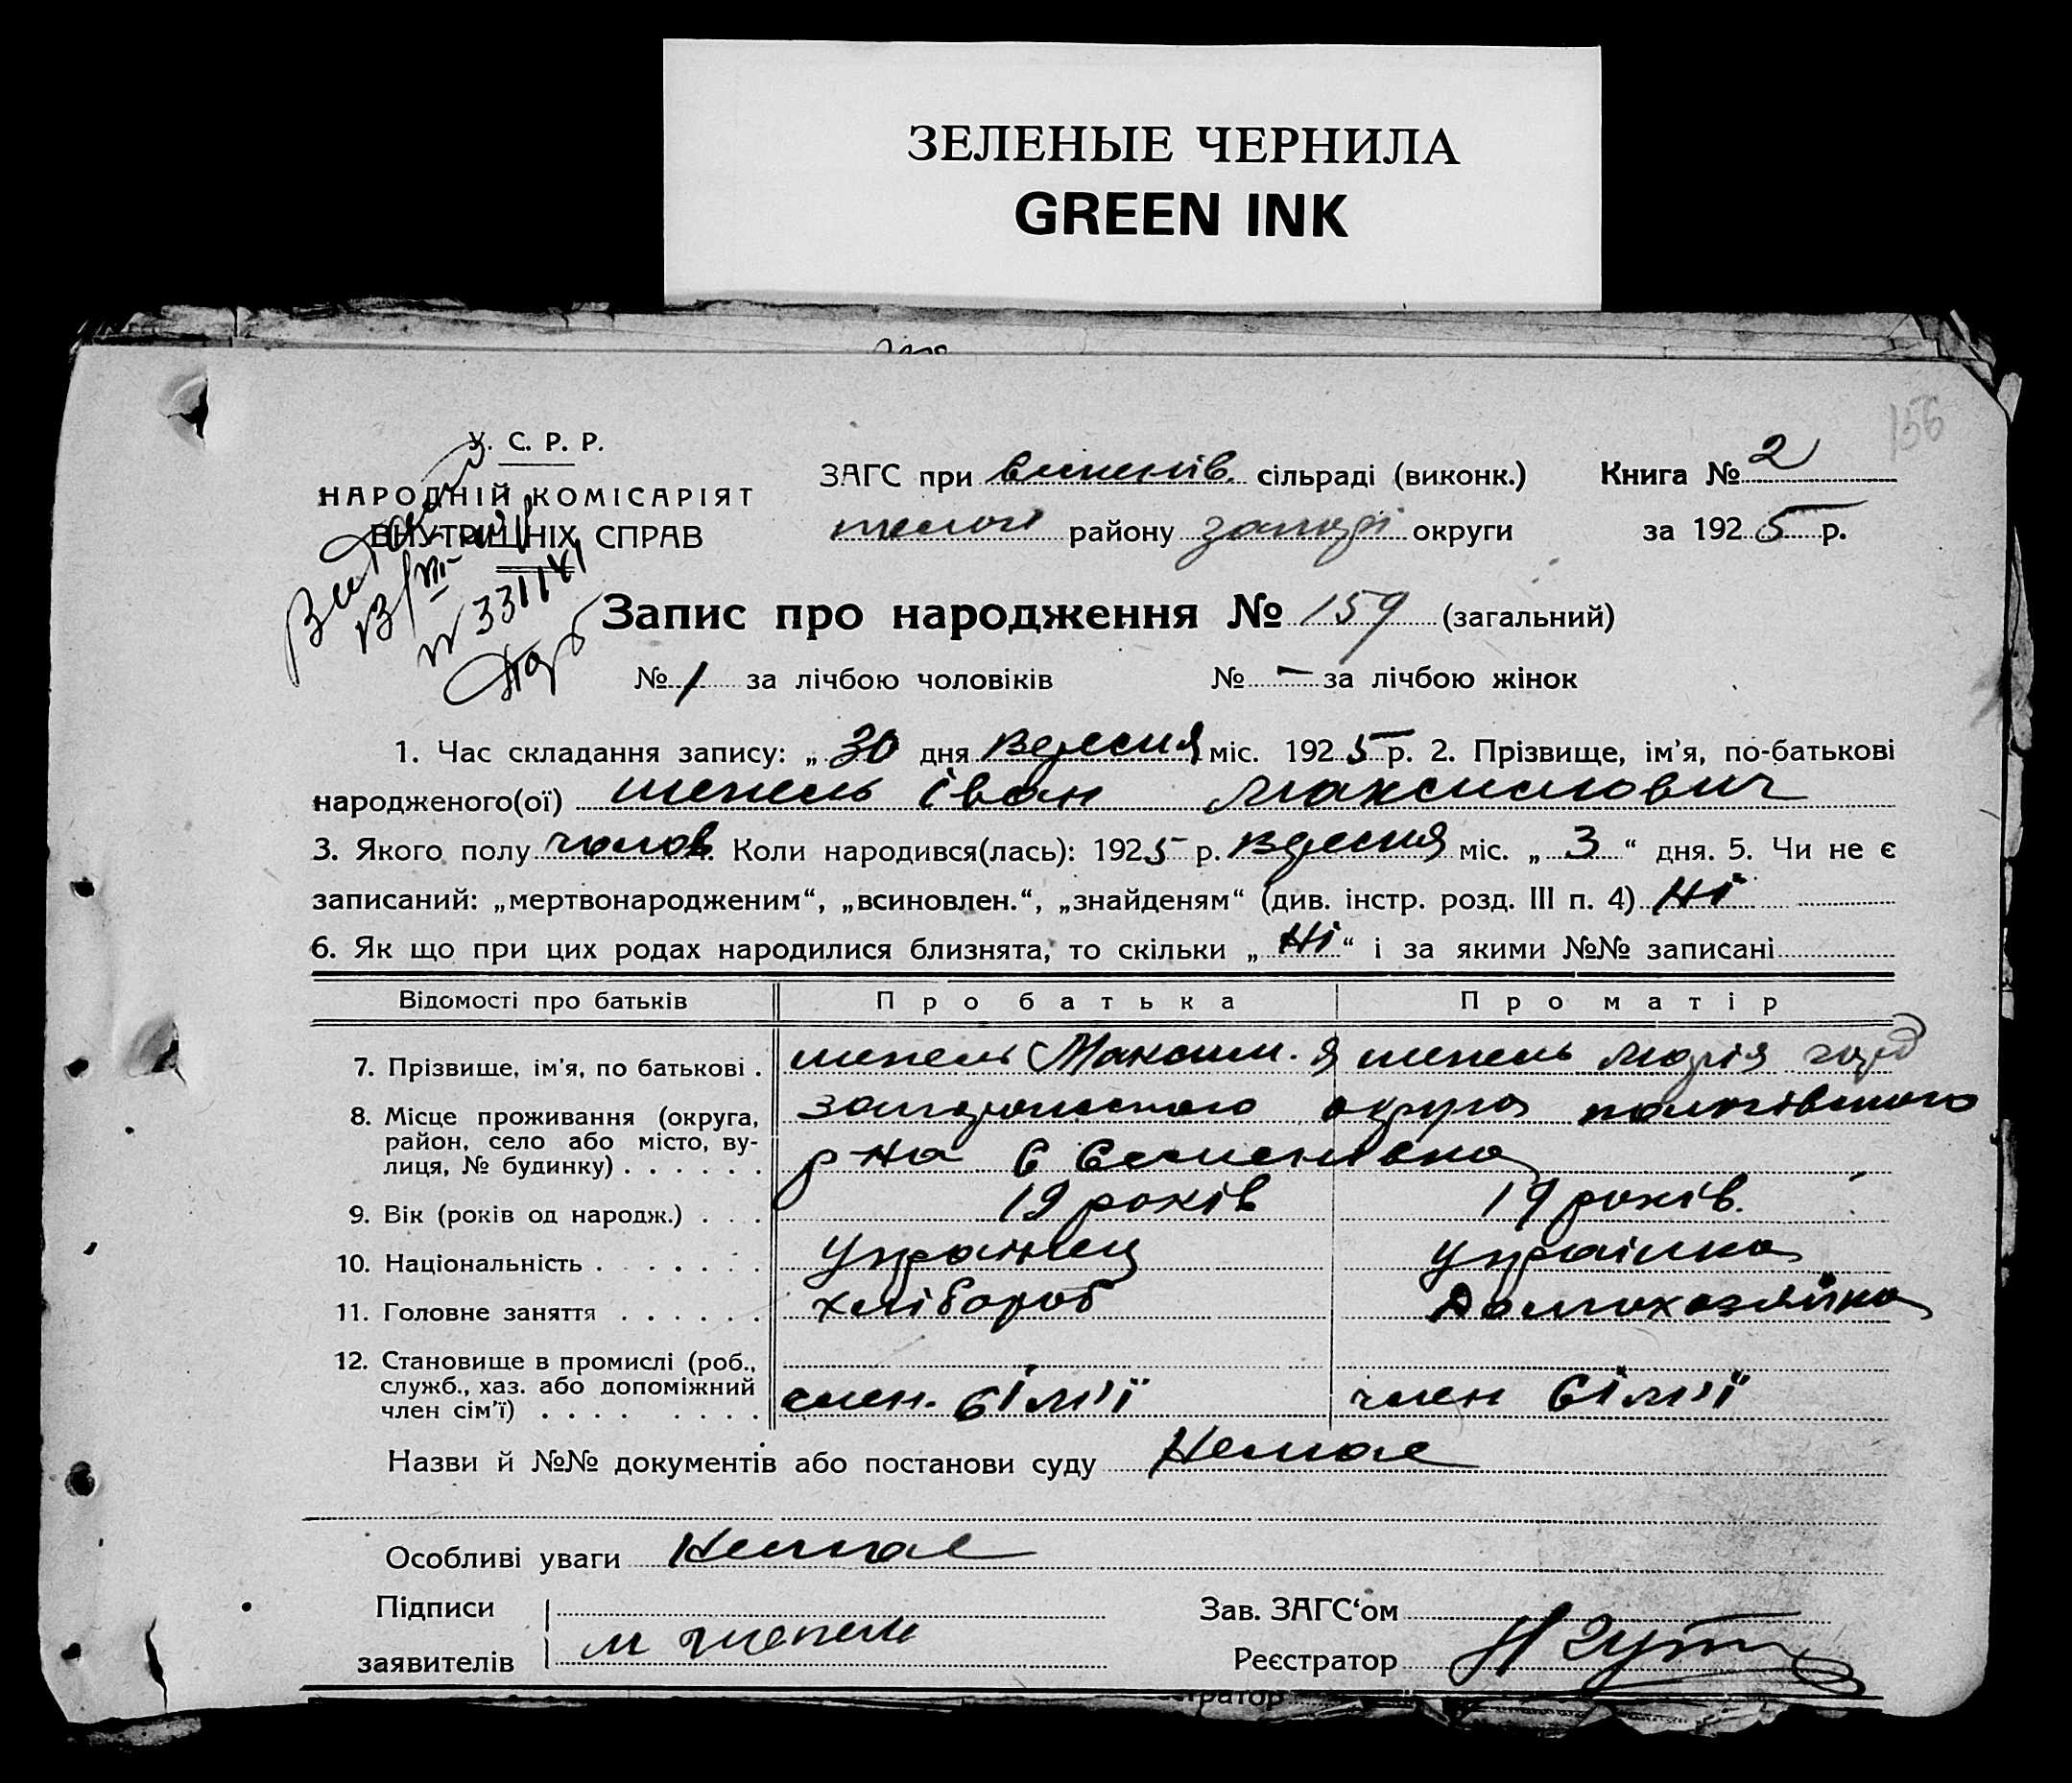 ЗЕЛЕНЫЕ ЧЕРНИЛА
GREEN INK
156
У. С. Р. Р.
НАРОДНІЙ КОМІСАРІЯТ
ВНУТРІШНІХ СПРАВ
№ 331141
ЗАГС при сільраді (виконк.) Книга № 2
району округи за 1925 р.
Запис про народження № 159 (загальний)
№ 1 за лічбою чоловіків № – за лічбою жінок
1. Час складання запису: „ 30 дня вересня міс. 1925 р. 2. Прізвище, ім'я, по-батькові
народженого(ої) шепель іван максимович
3. Якого полу чолов. Коли народився(лась): 1925 р. вересня міс. „ 3 “ дня. 5. Чи не є
записаний: „мертвонародженим“, „всиновлен.“, „знайденям“ (див. інстр. розд. III п. 4) Ні
6. Як що при цих родах народилися близнята, то скільки „ Ні “ і за якими №№ записані
Відомості про батьків Про батька Про матір
7. Прізвище, ім'я, по батькові . шепель Максим. Я шепель марія
8. Місце проживання (округа, запорожського округа
район, село або місто, ву- р-на С Семенівка
лиця, № будинку) . . . . . .
9. Вік (років од народж.) . . . 19 років 19 років.
10. Національність . . . . . . . Українец українка
11. Головне заняття . . . . . . хлібороб Домохазяйка
12. Становище в промислі (роб.,
служб., хаз. або допоміжний
член сім'ї) . . . . . . . . член. сім'ї член сім'ї
Назви й №№ документів або постанови суду Немає
Особливі уваги Немає
Підписи Зав. ЗАГС‘ом
заявителів м шепель Реєстратор
тратор